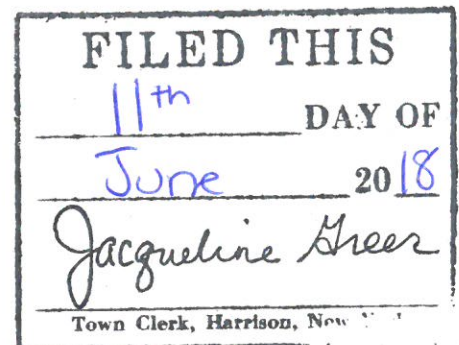 FILED THIS
11th DAY OF
June 2018
Jacqueline Greer
Town Clerk, Harrison, New